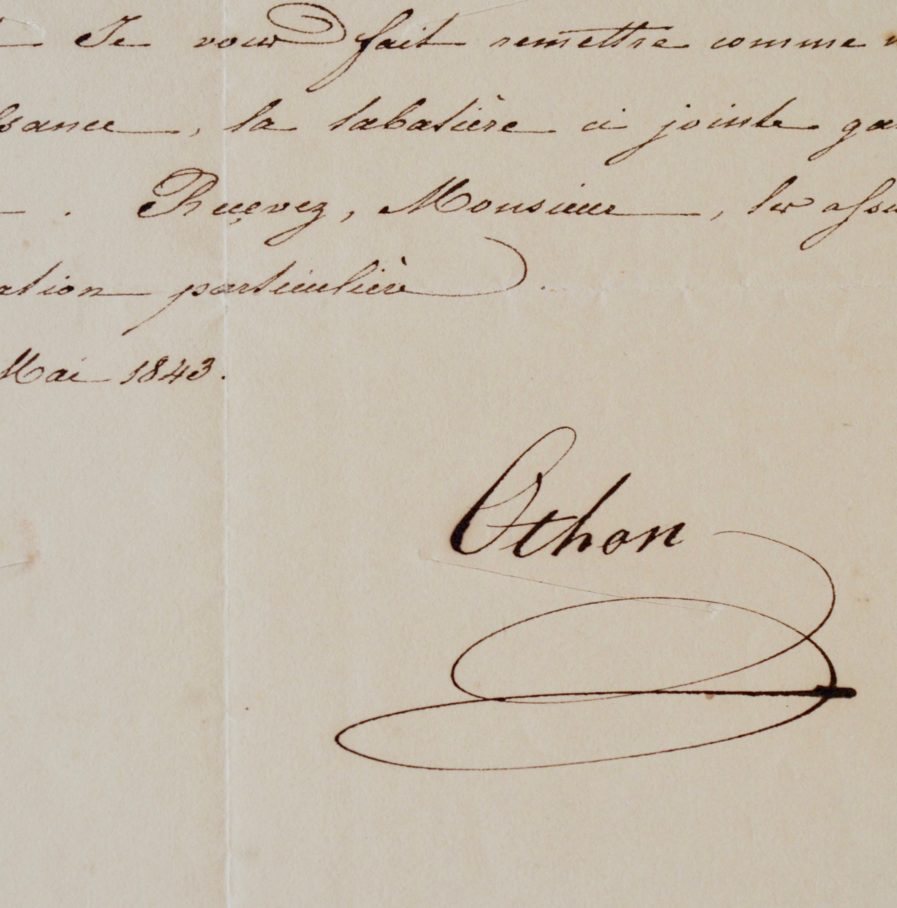 Je vous fait remettre comme
ssance, la tabatière ci jointe ga
. Reçevez, Monsieur, les assu
ation particulière.
Mai 1843.
Othon